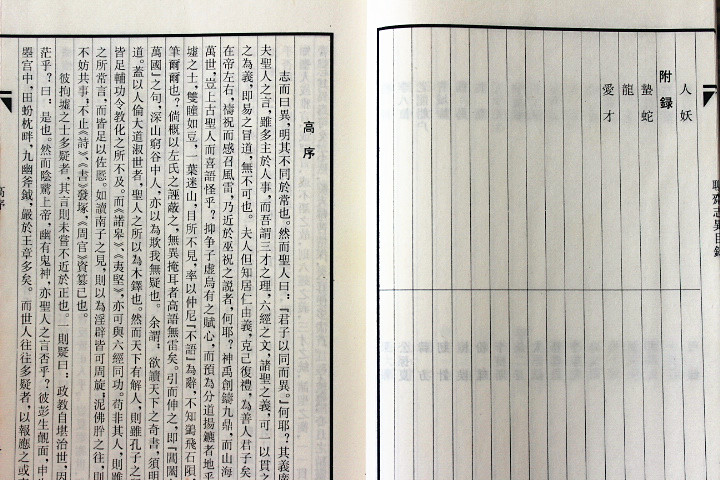 聊齋志異目錄
人妖
附錄
蟄蛇
龍
愛才
高序
志而曰異,明其不同於常也。然而聖人曰:『君子以同而異。』何耶?其義廣
夫聖人之言,雖多主於人事,而吾謂三才之理,六經之文,諸聖之義,可一以貫之
之為義,即易之冒道,無不可也。夫人但知居仁由義,克己復禮,為善人君子矣
在帝左右,禱祝而感召風雷,乃近於巫祝之說者,何耶?神禹創鑄九鼎,而山海
萬世,豈上古聖人而喜語怪乎?抑爭子虛烏有之賦心,而預為分道揚鑣者地乎
墟之士,雙瞳如豆,一葉迷山,目所不見,率以仲尼『不語』為辭,不知鷁飛石隕,
筆爾爾也?倘概以左氏之誣蔽之,無異掩耳者高語無雷矣。引而伸之,即『閶闔
萬國』之句,深山窮谷中人,亦以為欺我無疑也。余謂:欲讀天下之奇書,須明
道。蓋以人倫大道淑世者,聖人之所以為木鐸也。然而天下有解人,則雖孔子之
皆足輔功令教化之所不及。而《諾皋》、《夷堅》,亦可與六經同功。苟非其人,則雖
之所常言,而皆足以佐慝。如讀南子之見,則以為淫辟皆可周旋;泥佛肸之往,則
不妨共事;不止《詩》、《書》發塚,《周官》資篡已也。
彼拘墟之士多疑者,其言則未嘗不近於正也。一則疑曰:政教自堪治世,因
茫乎?曰:是也。然而陰騭上帝,幽有鬼神,亦聖人之言否乎?彼彭生覿面,申
曌宮中,田蚡枕畔,九幽斧鉞,嚴於王章多矣。而世人往往多疑者,以報應之或
高序